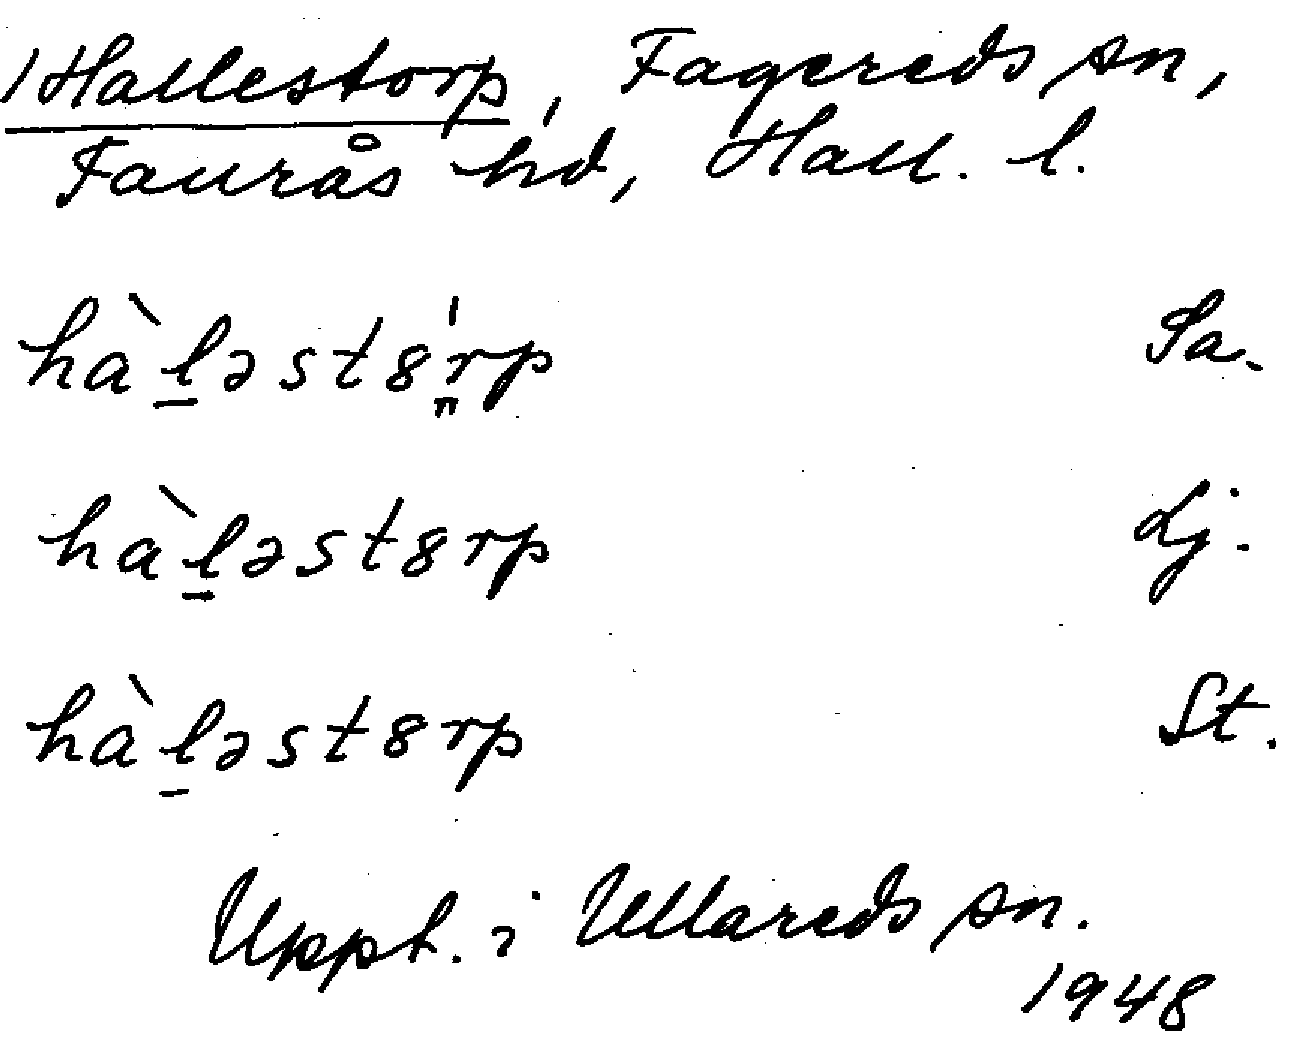 Hallestorp, Fagereds sn,
Faurås hd, Hall. l.
hàl̠əst8rp Sa.
hàl̠əst8rp Lj.
hàl̠əst8rp St.
Uppt. i Ullareds sn.
1948